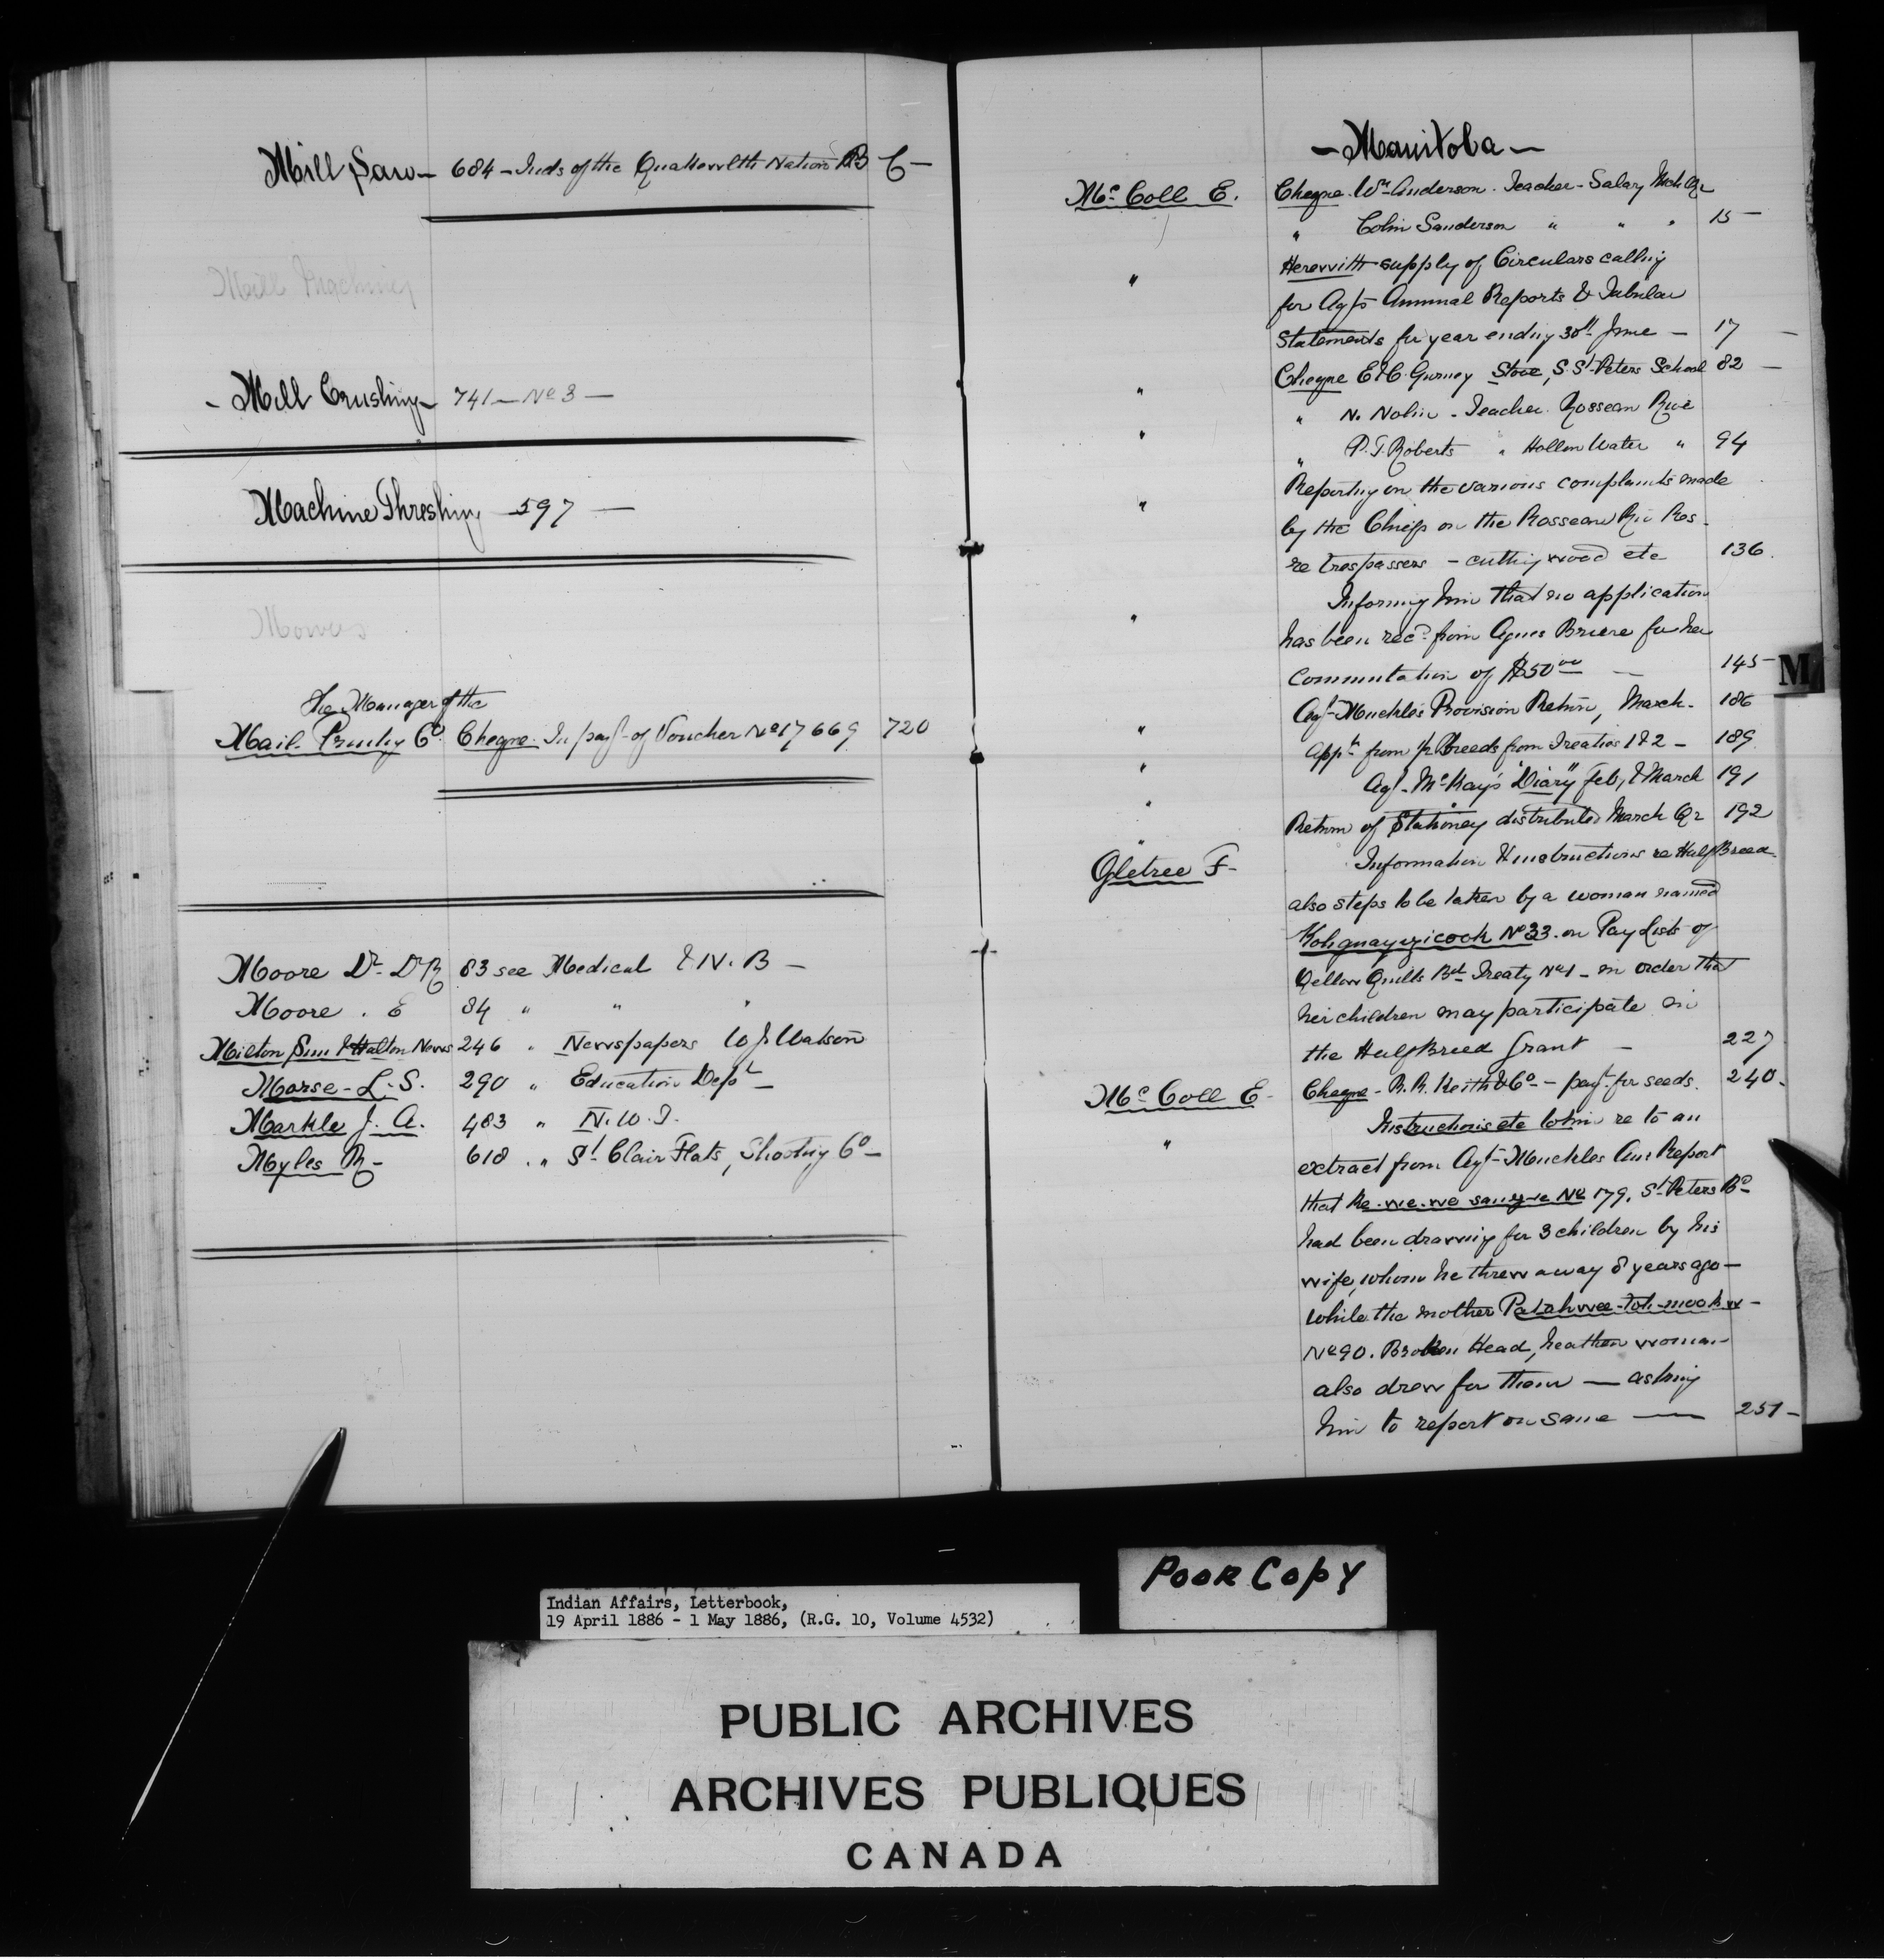 Mill Saw — 684 — Inds of the Quakewlth Nation B C —
Mill Machinery
— Mill Crushing — 741 — No 3 —
Machine Threshing — 597 —
Mowers
The Manager of the
Mail Printing Co. Cheque In payt of Voucher No 17669 720
Moore Dr. D R 83 see Medical & N. B —
Moore . E 84 " " "
Milton Sun & Halton News 246 " Newspapers W J Watson
Morse - L. S. 290 " Education Dept —
Markle J. A. 483 " N. W. T.
Myles R — 618 " St. Clair Flats, Shooting Co —
— Manitoba —
Mc Coll E. Cheque. Wm Anderson. Teacher - Salary Mch Qr
" Colin Sanderson " " " 15 —
" Herewith supply of Circulars calling
for Agts Annual Reports & Tabular
Statements for year ending 30th June — 17 —
" Cheque E & C. Gurney Stove, S St Peters School 82 —
" " N. Nolin - Teacher. Rosseau Rive
" P. T. Roberts " Hollow Water " 94
" Reporting on the various complaints made
by the Chiefs on the Rosseau Riv Res.
re trespassers — cutting wood etc 136.
" Informing him that no application
has been recd. from Agnes Briere for her
Commutation of $50 00 — 145 —
" Agt Muckle's Provision Return, March. 186
" Appts from ½ Breeds from Treaties 1 & 2 — 189
" Agt. McKay's "Diary" Feb, & March 191
" Return of Stationery distributed March Qr 192
Ogletree F — Information & instructions re Half Breed
also steps to be taken by a woman named
No 33. on Pay Lists of
Yellow Quills Bd Treaty No 1 — in order that
her children may participate in
the Half Breed Grant — 227
Mc Coll E — Cheque — R. R. Keith & Co — payt. for seeds. 240 —
" Instructions etc to him re to an
extract from Agt Muckles Ann Report
that Ke-we-we No 179. St Peters Bd
had been drawing for 3 children by his
wife, whom he threw away 8 years ago —
while the mother
No 90. Broken Head, heathen woman
also drew for them — asking
him to report on same — 251 —
M
POOR COPY
Indian Affairs, Letterbook,
19 April 1886 - 1 May 1886, (R.G. 10, Volume 4532)
PUBLIC ARCHIVES
ARCHIVES PUBLIQUES
CANADA